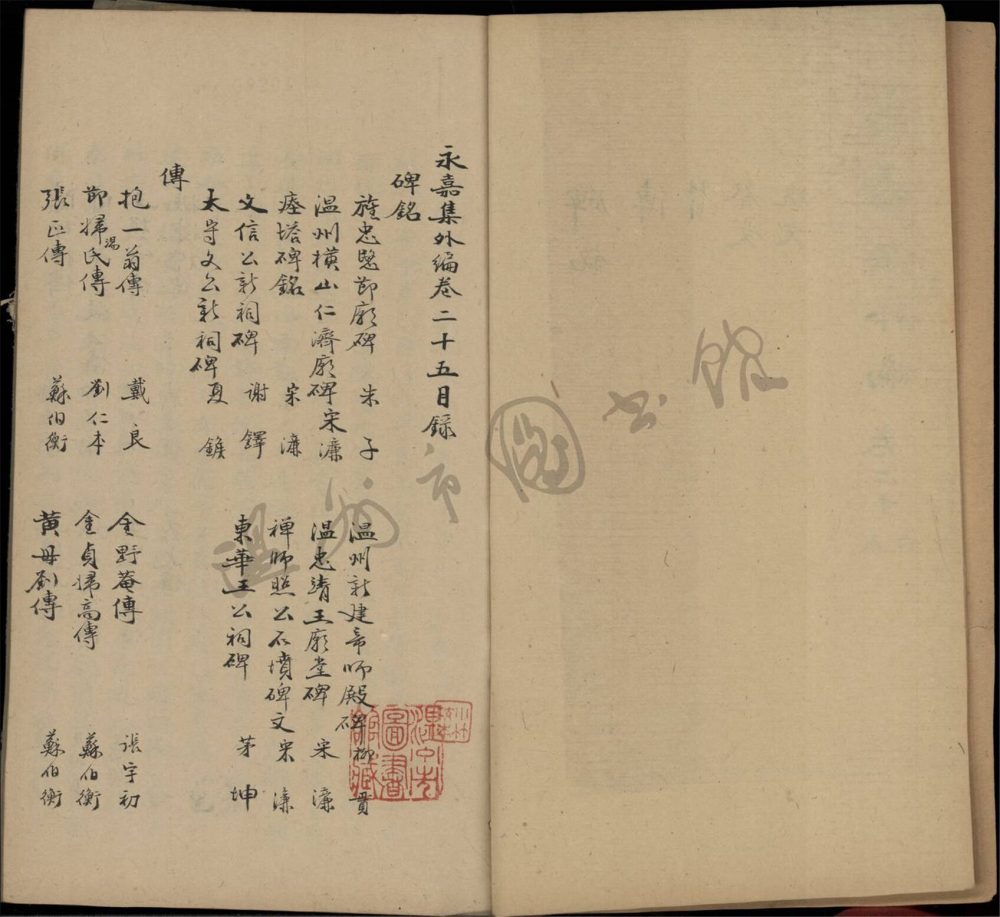 永嘉集外編卷二十五目錄
碑銘
旌忠愍節廟碑 朱子 溫州新建帝師殿碑 柳貫
溫州橫山仁濟廟碑 宋濂 溫忠靖王廟堂碑 宋濂
瘞塔碑銘 宋濂 禅師照公石墳碑文 宋濂
文信公新祠碑 謝鐸 東華王公祠碑 茅坤
太守文公新祠碑 夏鍭
傳
抱一翁傳 戴良 金野菴傳 張宇初
節婦湯氏傳 劉仁本 金貞婦高傳 蘇伯衡
張正傳 蘇伯衡 黃母劉傳 蘇伯衡
溫州市圖書館藏
溫州市圖書館